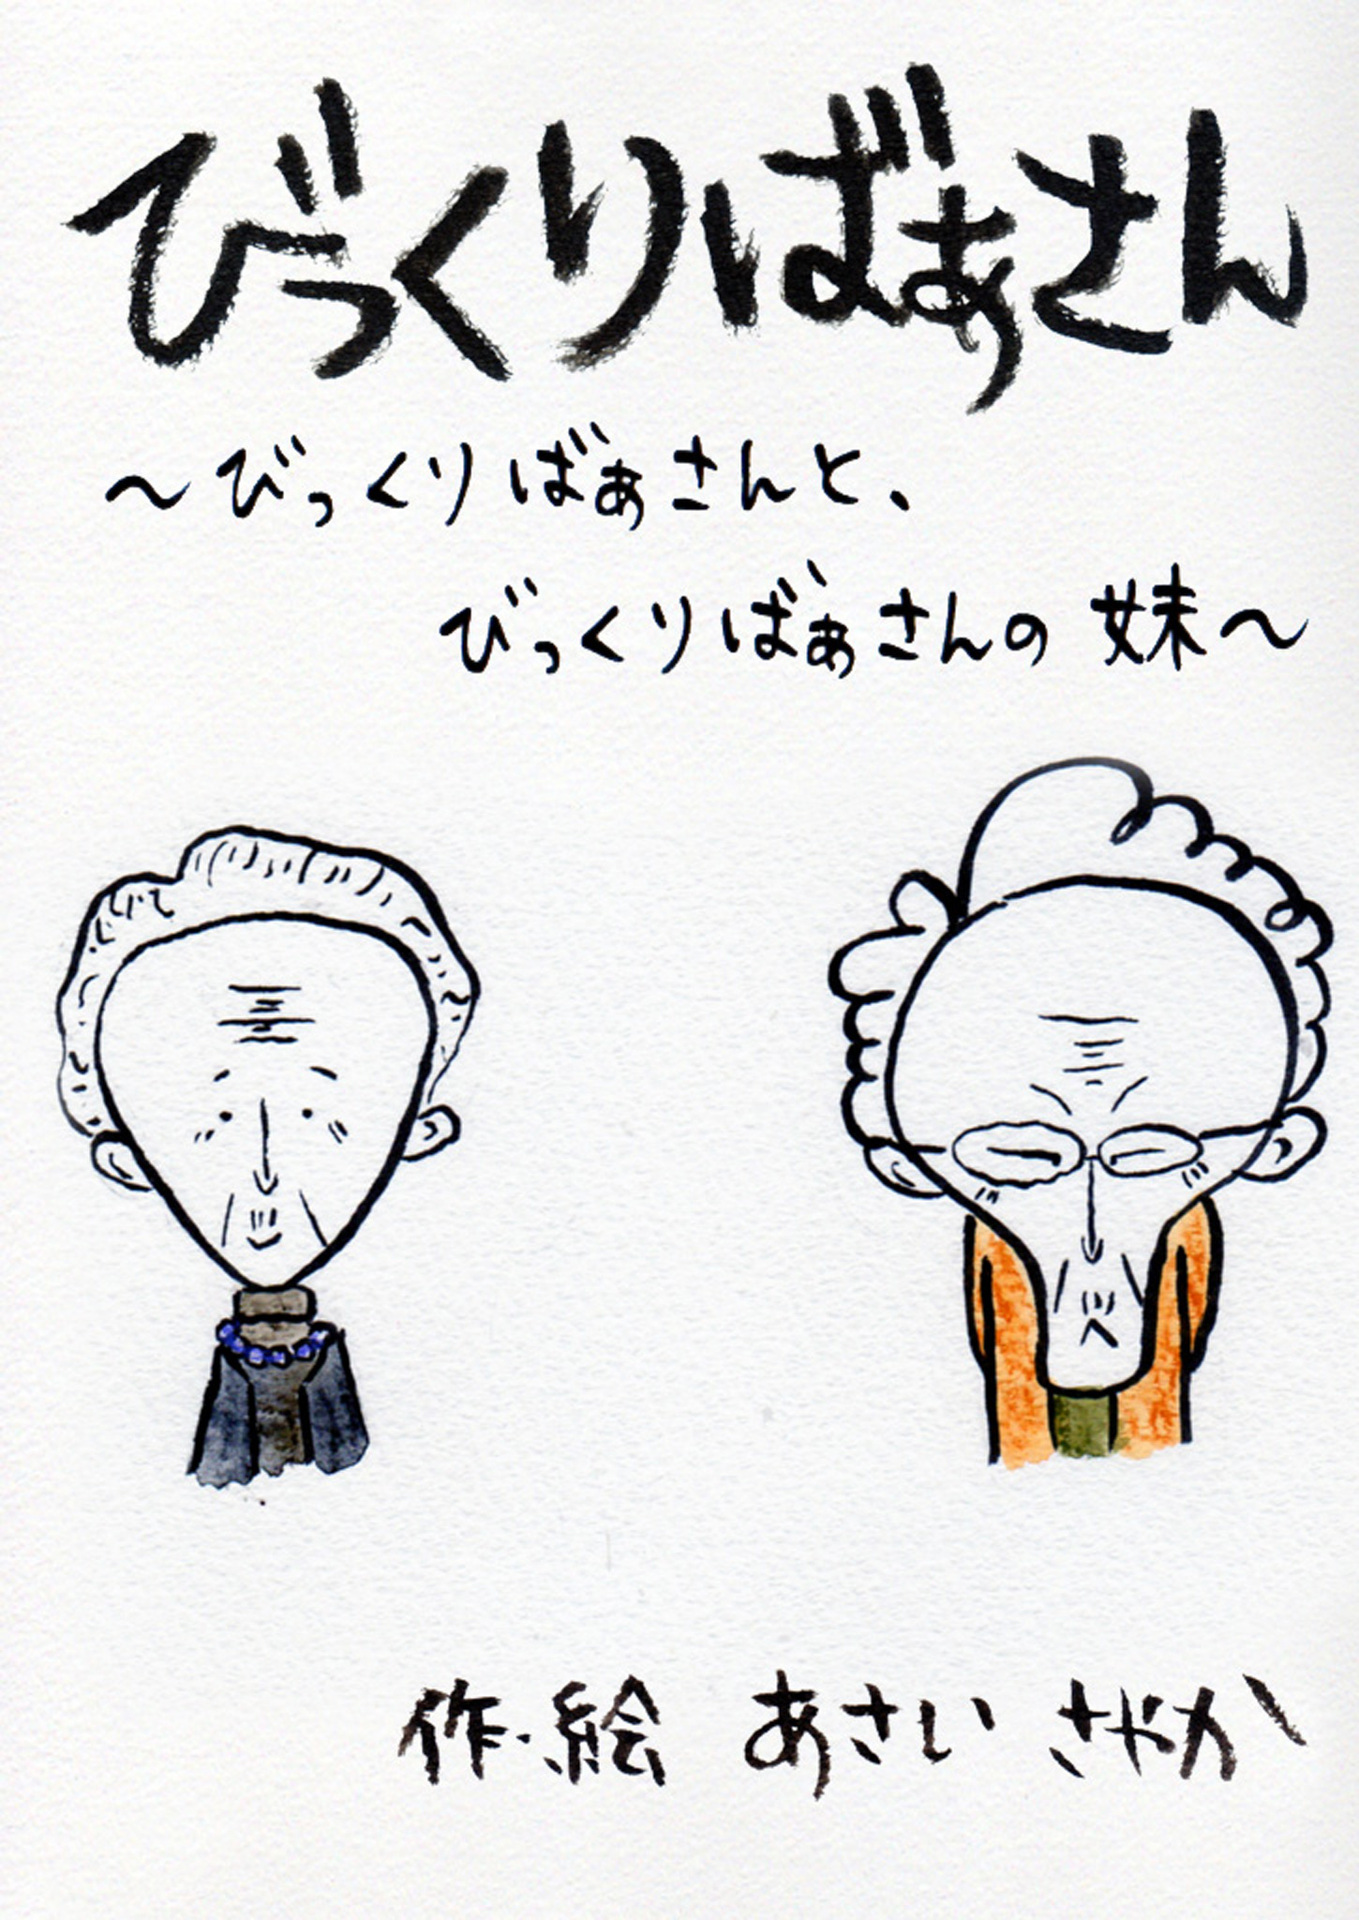 びっくりばぁさん
～びっくりばぁさんと、
びっくりばぁさんの妹～
作・絵 あさい さやか